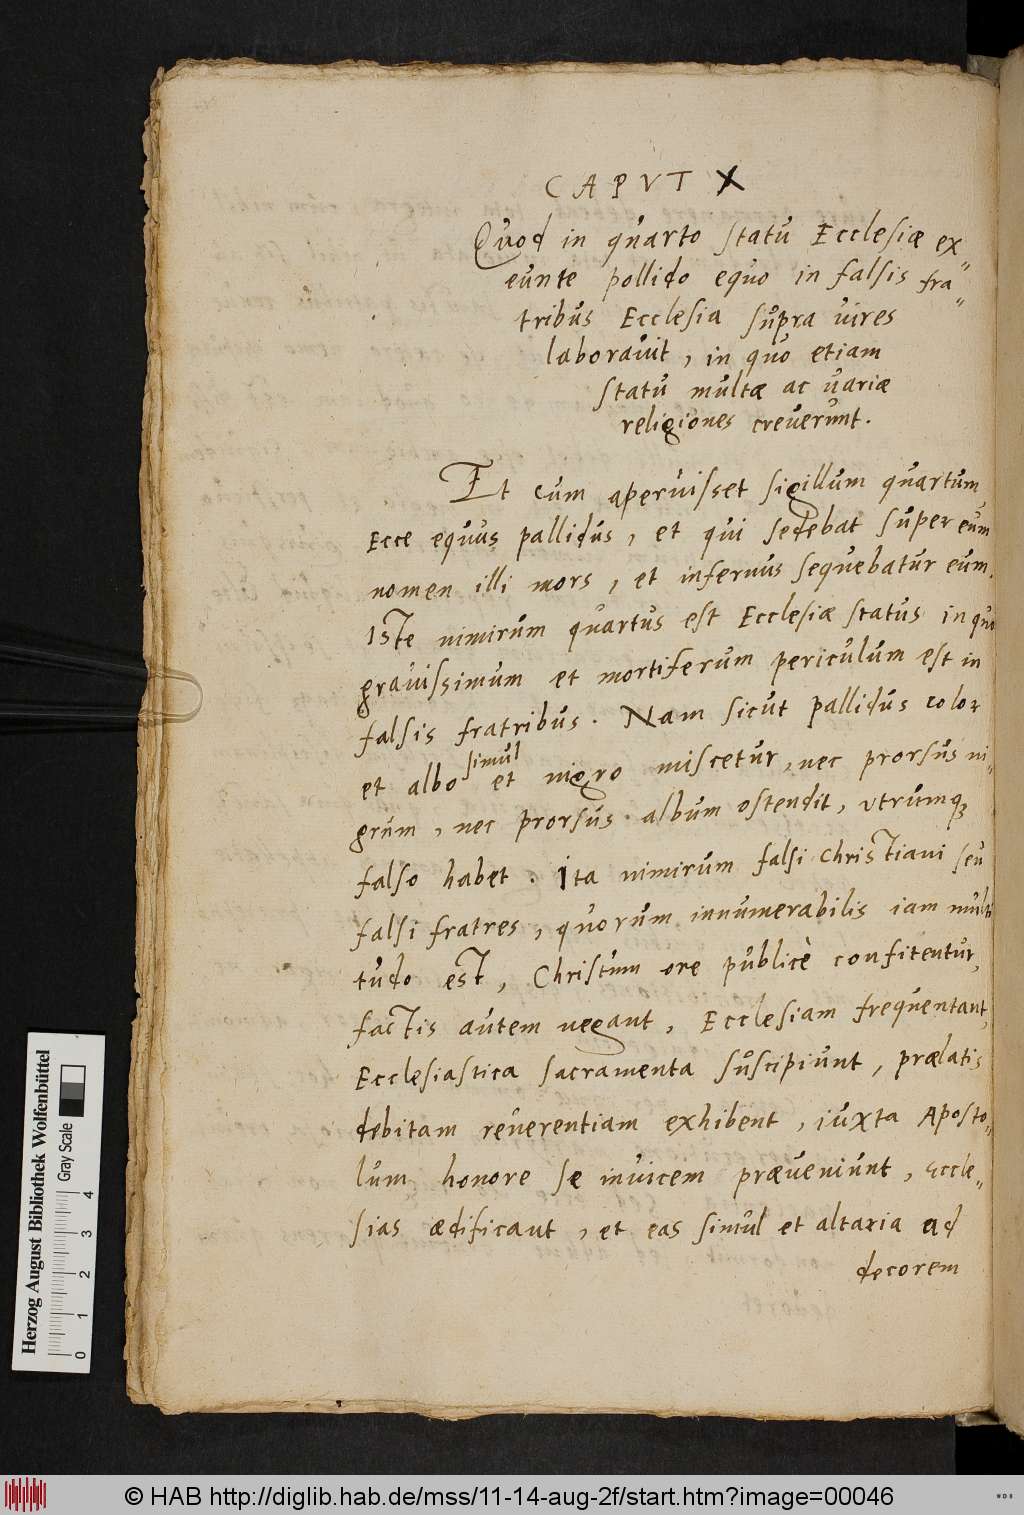 CAPVT X
Quod in quarto statu Ecclesiæ ex
eunte pollido equo in falsis fra„
tribus Ecclesia supra uires
laborauit, in quo etiam
statu multæ ac uariæ
religiones creuerunt.
Et cum aperuisset sigillum quartum,
Ecce equus pallidus, et qui sedebat super eum
nomen illi mors, et infernus sequebatur eum.
Iste nimirum quartus est Ecclesiæ status in quo
grauissimum et mortiferum periculum est in
falsis fratribus. Nam sicut pallidus color
simul
et albo et nigro miscetur, nec prorsus ni„
grum, nec prorsus album ostendit, utrumq3
falso habet. Ita nimirum falsi Christiani seu
falsi fratres, quorum innumerabilis iam multi
tudo est, Christum ore publicè confitentur,
factis autem negant, Ecclesiam frequentant,
Ecclesiastica sacramenta suscipiunt, prælatis
debitam reuerentiam exhibent, iuxta Aposto„
lum honore se inuicem præueniunt, Eccle„
sias ædificant, et eas simul et altaria ad
decorem
Herzog August Bibliothek Wolfenbüttel
Gray Scale
0 1 2 3 4
© HAB http://diglib.hab.de/mss/11-14-aug-2f/start.htm?image=00046